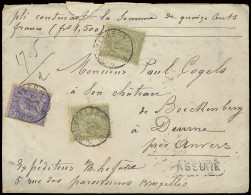 pli contenant la somme de quinze cents
francs (frs 1,500)
à Monsieur Paul Cogels
en son château
de Boeckenberg
à Deurne
près Anvers
ASSURÉ
expéditeur
5 rue des Paroissiens Bruxelles